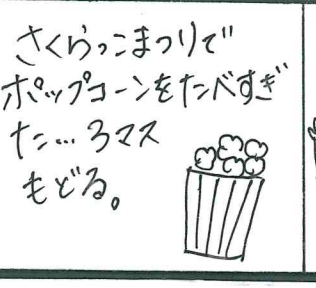 さくらっこまつりで
ポップコーンをたべすぎ
た…3マス
もどる。